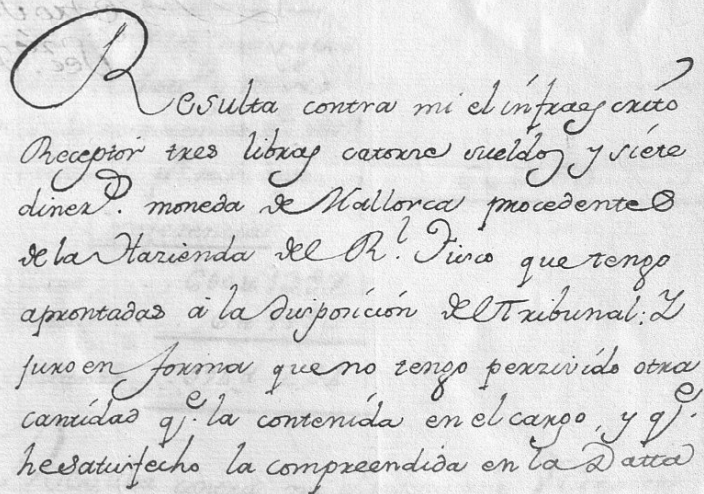 Resulta contra mi el infraescrito
Receptor tres libras catorze sueldos y siete
diner.ˢ moneda de Mallorca procedentes
de la Hazienda del R.ˡ Fisco que tengo
aprontadas á la disposición del Tribunal: Y
juro en forma que no tengo perzivido otra
cantidad q.ᵉ la contenida en el cargo, y q.ᵉ
he satisfecho la compreendida en la Datta